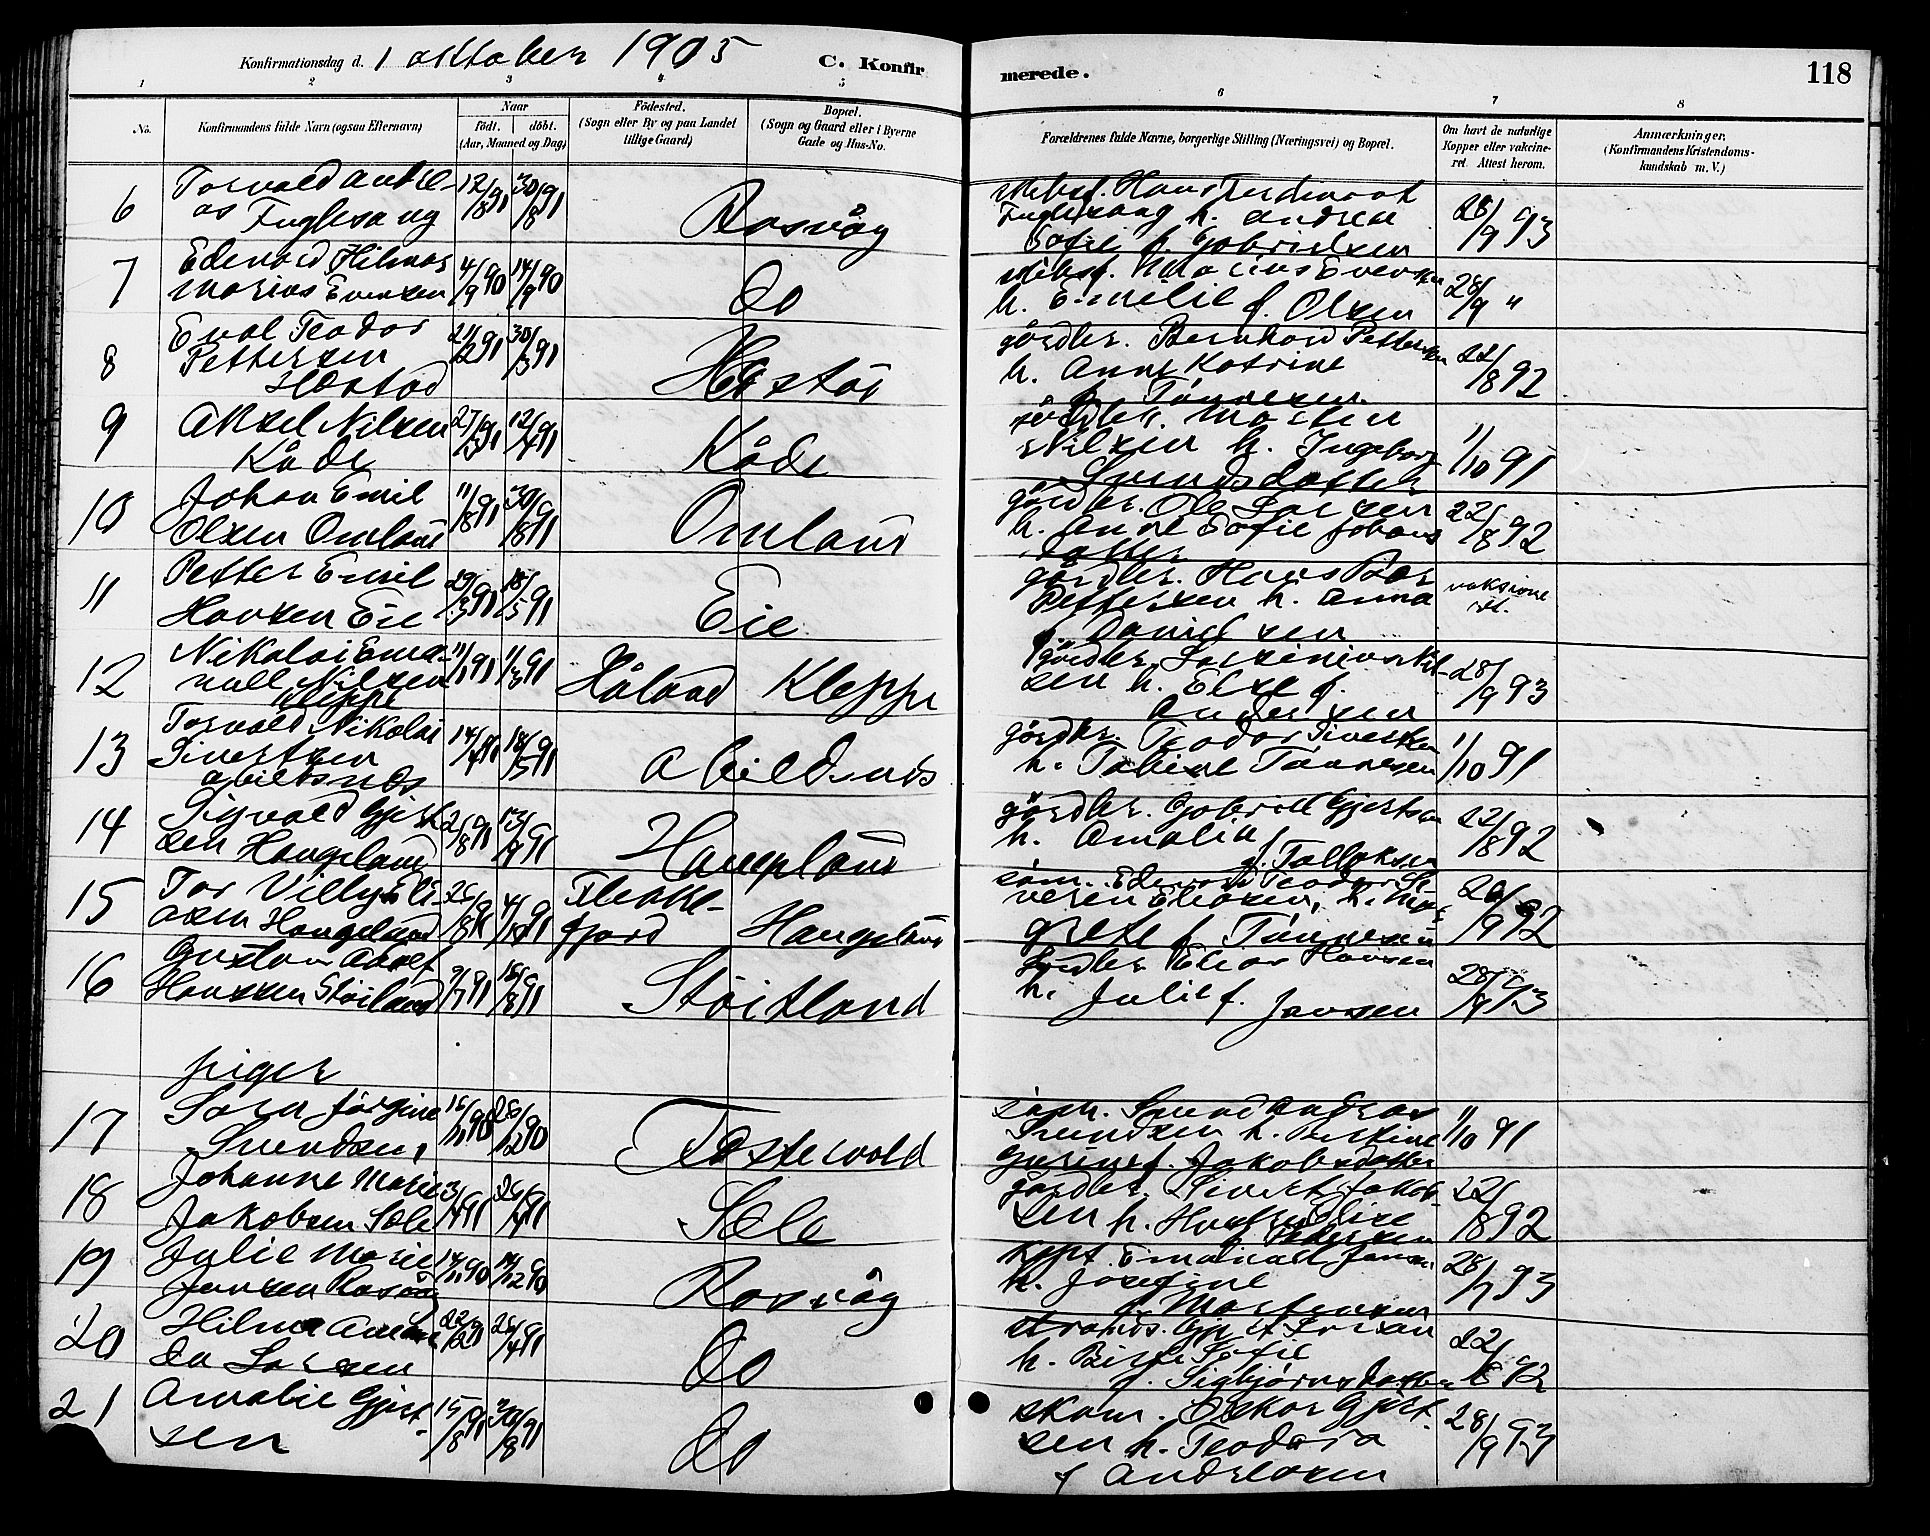 Konfirmationsdag d. 1 oktober 1905
C. Konfirmerede.
118
1 2 3 4 5 6 7 8
No.
Konfirmandens fulde Navn (ogsaa Efternavn)
Naar
födt. döbt.
(Aar, Maaned og Dag)
Födested.
(Sogn eller By og paa Landet tillige Gaard)
Bopæl.
(Sogn og Gaard eller i Byerne Gade og Hus-No.
Forældrenes fulde Navne, borgerlige Stilling (Næringsvei) og Bopæl.
Om havt de naturlige Kopper eller vakcineret. Attest herom.
Anmærkninger.
(Konfirmandens Kristendomskundskab m. V.)
6 Torvald Andre-
as Fuglesang 12/8 91 30/8 91 Rasvåg
Fuglesang h. Andrea
Sofie f. Gabrielsen 28/9 93
7 Edevard Hilmar
Marius Evensen 4/9 90 14/9 90 Do
Marius Evensen
h. Emilie f. Olsen 28/9 "
8 Enol Teodor
Pettersen
Hestad 21/2 91 30/3 91
gårdbr. Bernhard Pettersen
h. Anne Katrine
f. Tønnesen 22/8 92
9 Aksel Nilsen
Kåde 27/3 91 12/4 91 Kåde
Morten
Nilsen h. Ingeborg
Svendsdatter 1/10 91
10 Johan Emil
Olsen Omland 11/8 91 30/8 91 Omland
gårdbr. Ole Larsen
h. Anne Sofie Johans
datter 22/8 92
11 Petter Emil
Hansen Eie 29/3 91 18/5 91 Eie
gårdbr. Hans
Pettersen h. Anna
f. Danielsen
12 Nikolai Ema-
nuell Nilsen
Kleppe 11/1 91 1/3 91 Håland Kleppe
gårdbr. Nil-
sen h. Else f.
Andersen 28/9 93
13 Torvald Nikolai
Sivertsen
Abildsnæs 14/4 91 18/5 91 Abildsnæs
gårdbr. Teodor Sivertsen
h. Tobine Tønnesen 1/10 91
14 Sigvald Gjert
sen Haugeland 2/8 91 13/9 91 Haugeland
gårdbr. Gabriell Gjertsen
h. Amalia
f. Tallaksen 22/8 92
15 Tor Villy Eli-
asen Haugeland 26/8 91 4/10 91 Flekke-
fjord Haugeland
søm. Edevard Teodor Se-
verin Eliasen, h.
grete f. Tønnesen
16 Gustav Adolf
Hanssen Støitland 9/7 91 16/8 91 Støitland
Elias Hansen
h. Julie f. Jansen 28/9 93
piger
17 Sara Jørgine
Svendsen, 16/11 90 26/12 90
søm. Svend Andreas
Svendsen h. Bertine
Gurine f. Jakobsdatter 1/10 91
18 Johanne Marie
Jakobsen Sæle 3/4 91 26/4 91 Sæle
gårdbr. Sivert Jakob
sen h.
f. Pedersen 22/8 92
19 Julie Marie
Jansen Rasvåg 14/11 90 14/12 90 Rasvåg
Kapt. Emanuell Jansen
h. Josefine
f. Mortensen 28/9 93
20 Hilma Aman
da Larsen 22/2 91 26/4 91 Do
h.
f. Sigbjørnsdatter 22/8 92
21 Amalie Gjert-
sen 15/8 91 30/8 91 Do
Oskar Gjert
sen h. Teodora
f Andreasen 28/9 93